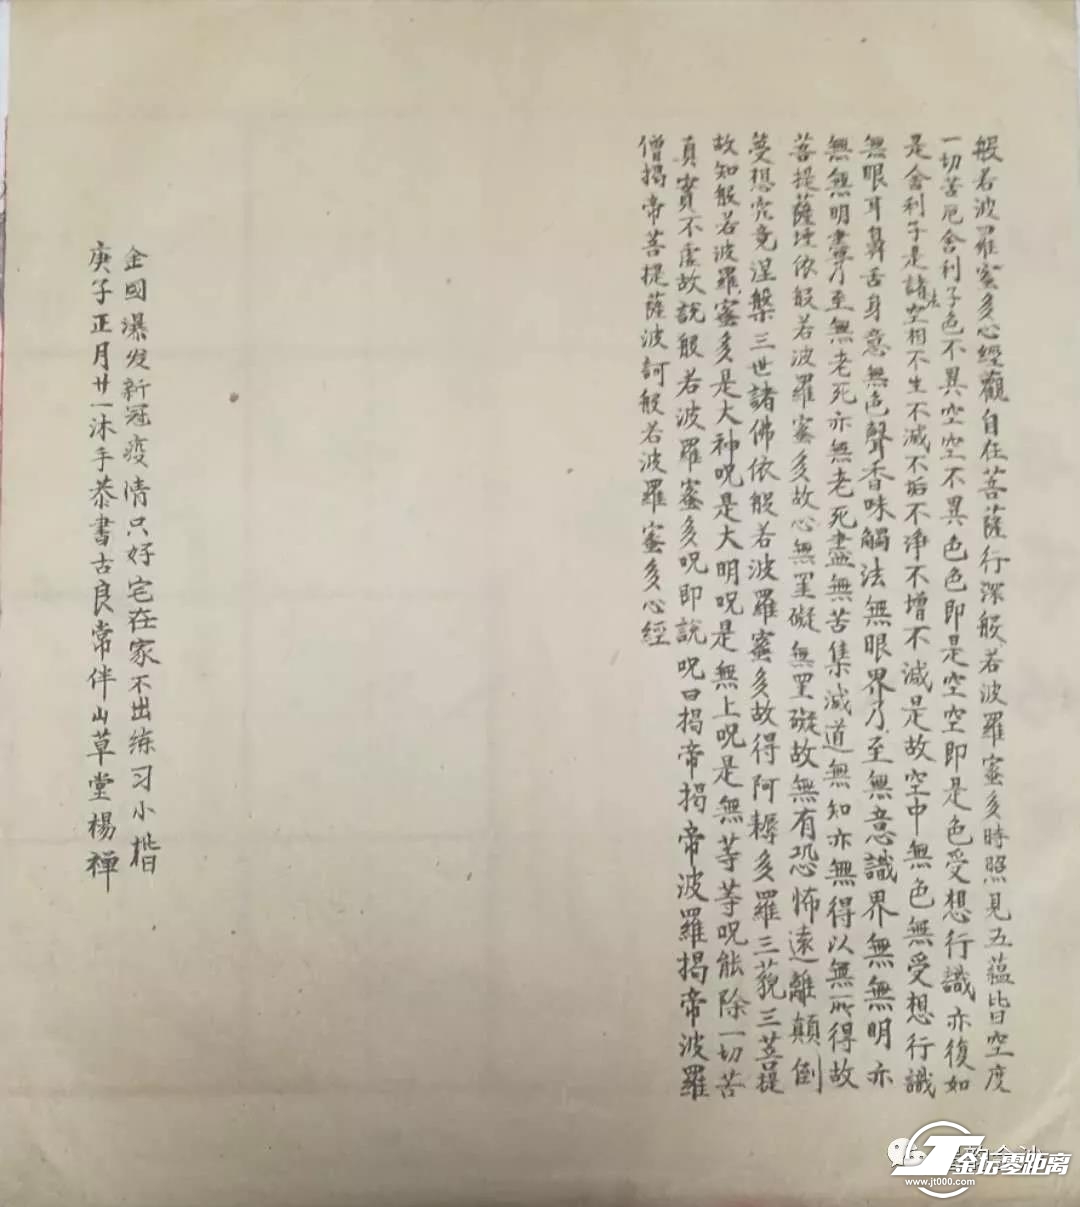 般若波羅蜜多心經觀自在菩薩行深般若波羅蜜多時照見五蘊皆空度
一切苦厄舍利子色不異空空不異色色即是空空即是色受想行識亦復如
是舍利子是諸法空相不生不滅不垢不淨不增不减是故空中無色無受想行識
無眼耳鼻舌身意無色聲香味觸法無眼界乃至無意識界無無明亦
無無明盡乃至無老死亦無老死盡無苦集滅道無知亦無得以無所得故
菩提薩埵依般若波羅蜜多故心無罣礙無罣礙故無有恐怖遠離顛倒
夢想究竟涅槃三世諸佛依般若波羅蜜多故得阿耨多羅三藐三菩提
故知般若波羅蜜多是大神呪是大明呪是無上呪是無等等呪能除一切苦
真實不虛故説般若波羅蜜多呪即説呪曰揭帝揭帝波羅揭帝波羅
僧揭帝菩提薩波訶般若波羅蜜多心經
全國瀑发新冠疫情只好宅在家不出练习小楷
庚子正月廿一沐手恭書古良常伴山草堂楊禅
金坛零距离
www.jt000.com